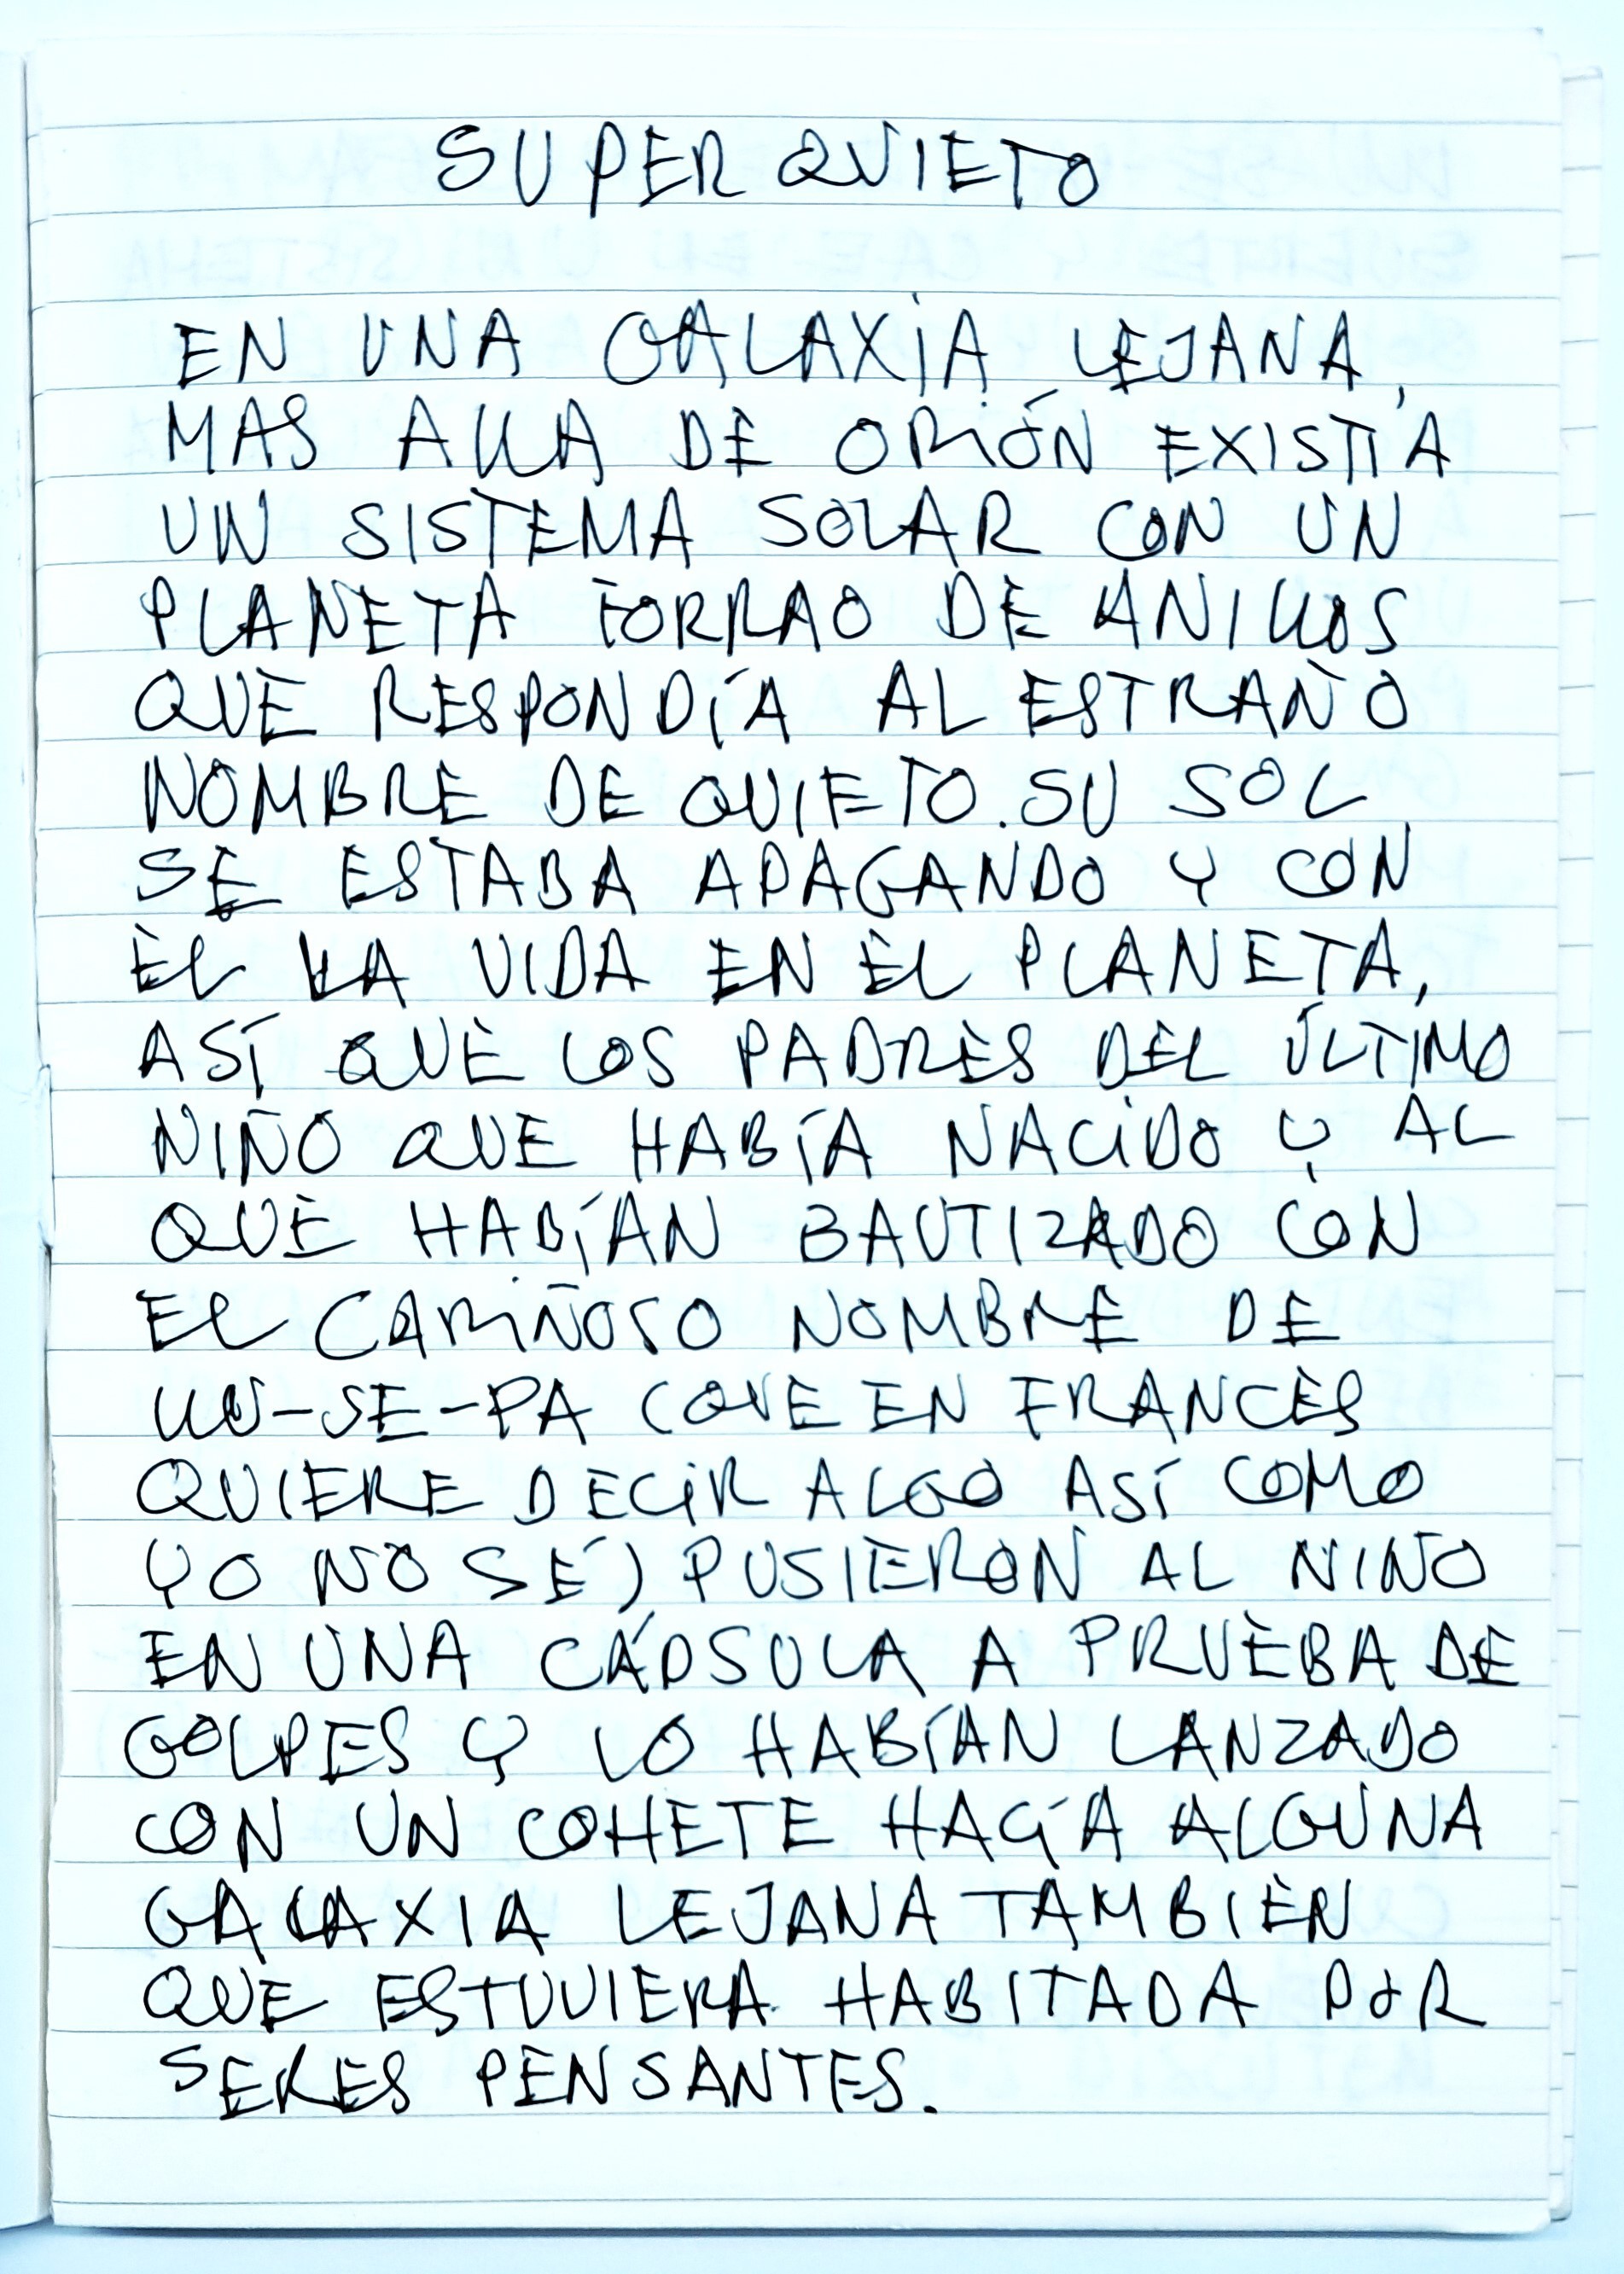 SUPER QUIETO
EN UNA GALAXIA LEJANA,
MAS ALLA DE ORIÓN EXISTÍA
UN SISTEMA SOLAR CON UN
PLANETA FORRAO DE ANILLOS
QUE RESPONDÍA AL ESTRAÑO
NOMBRE DE QUIETO. SU SOL
SE ESTABA APAGANDO Y CON
ÉL LA VIDA EN EL PLANETA,
ASÍ QUE LOS PADRES DEL ÚLTIMO
NIÑO QUE HABÍA NACIDO Y AL
QUE HABÍAN BAUTIZADO CON
EL CARIÑOSO NOMBRE DE
UU-SE-PA (QUE EN FRANCÉS
QUIERE DECIR ALGO ASÍ COMO
YO NO SÉ) PUSIERON AL NIÑO
EN UNA CÁPSULA A PRUEBA DE
GOLPES Y LO HABÍAN LANZADO
CON UN COHETE HACÍA ALGUNA
GALAXIA LEJANA TAMBIÉN
QUE ESTUVIERA HABITADA POR
SERES PENSANTES.